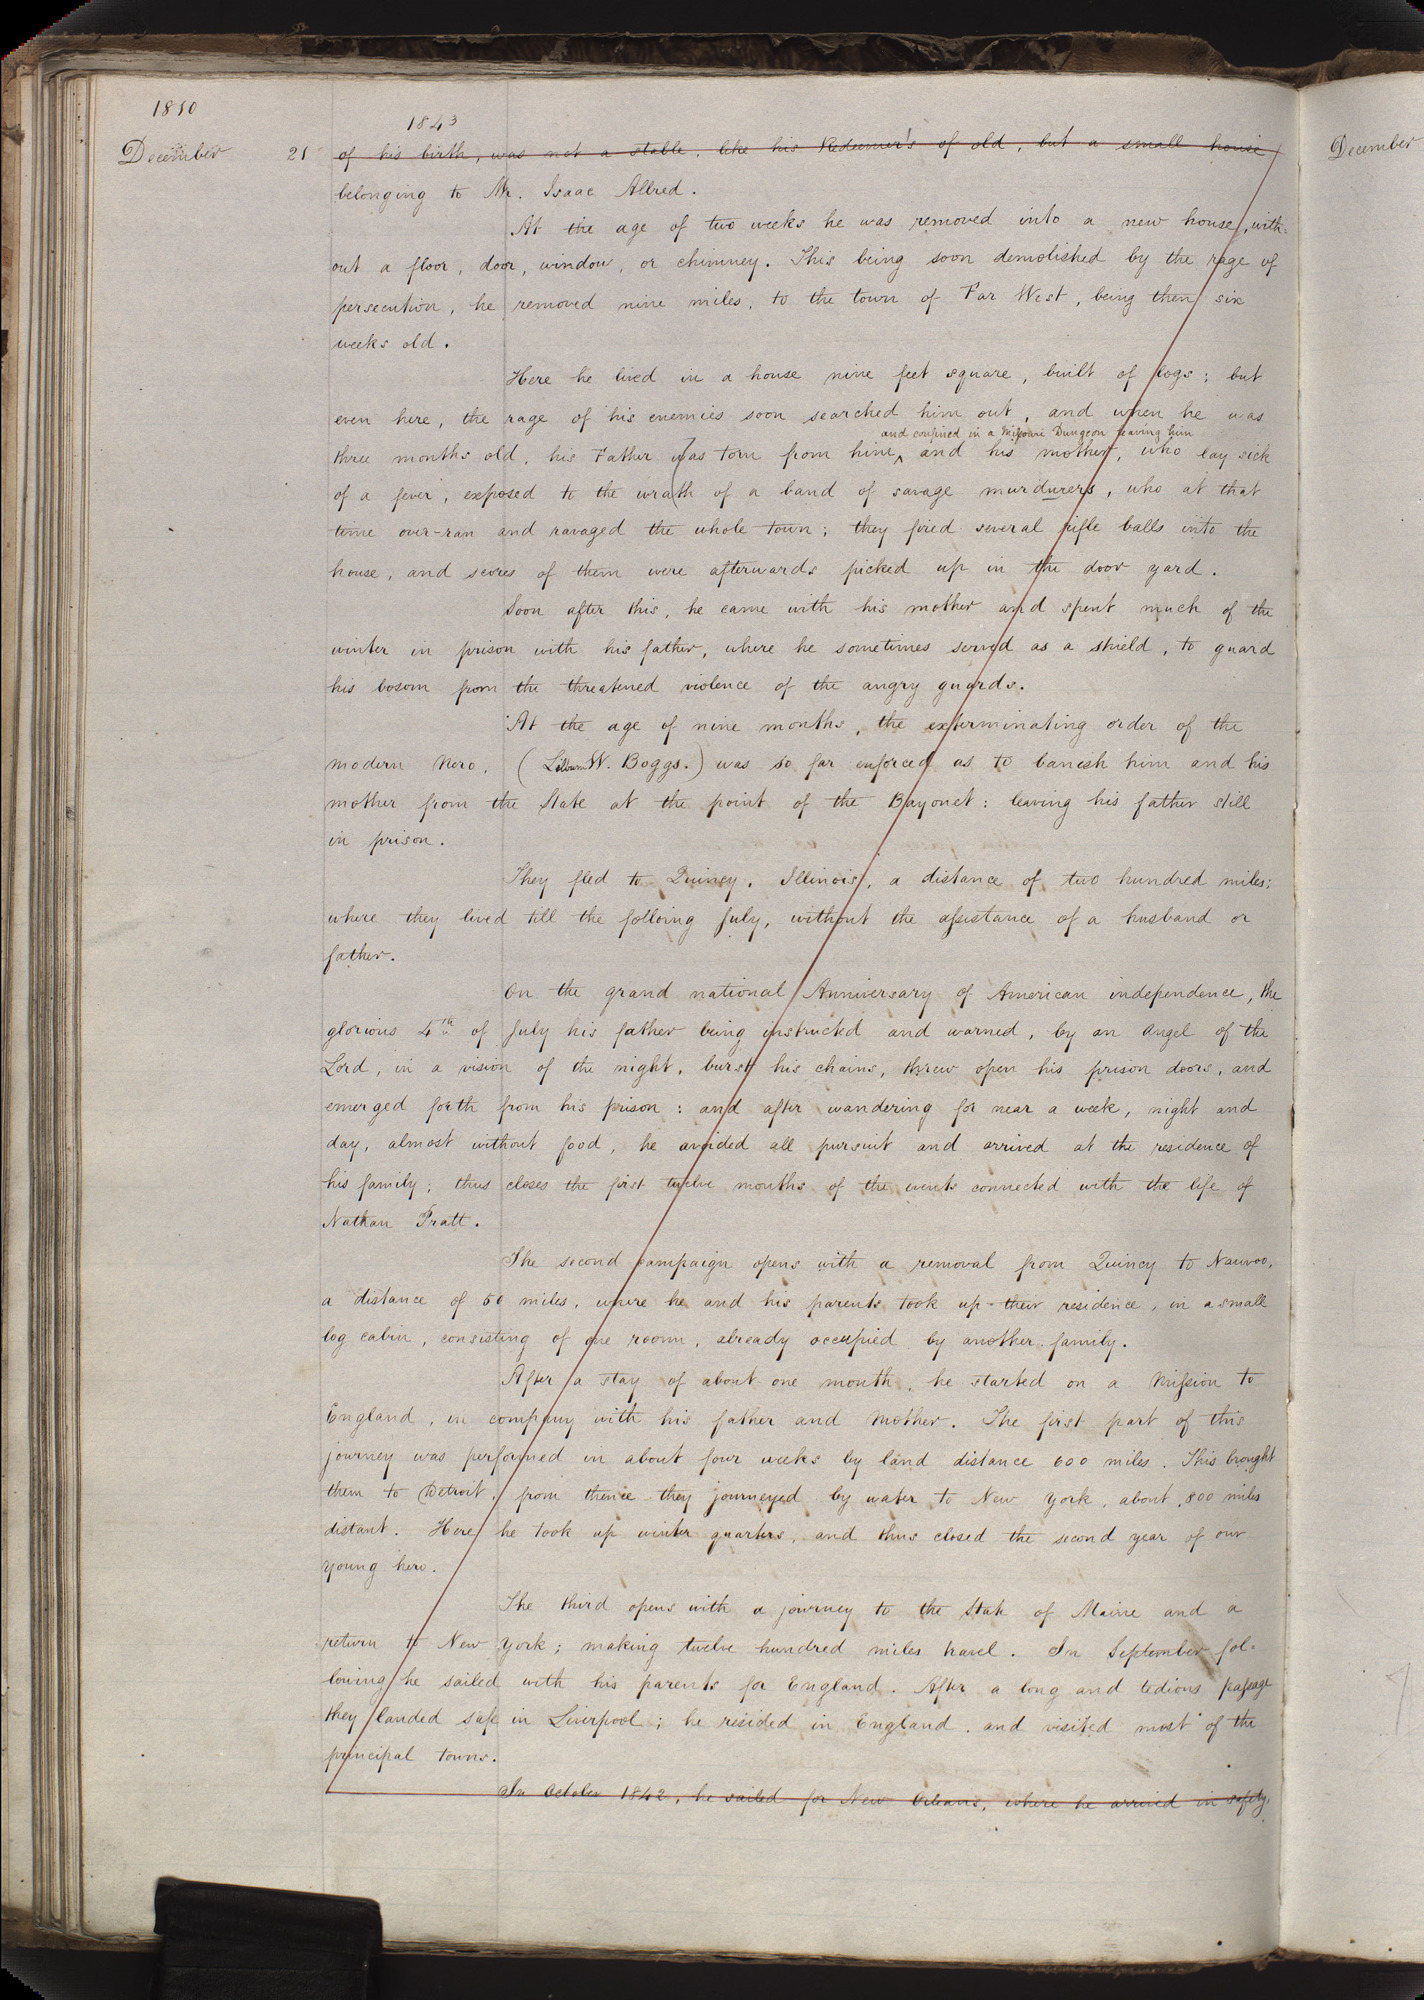 1810
1843
December 21 of his birth, was not a stable, like his Redeemer's of old, but a small house
December
belonging to Mr. Isaac Allred.
At the age of two weeks he was removed into a new house, with-
out a floor, door, window, or chimney. This being soon demolished by the rage of
persecution, he removed nine miles, to the town of Far West, being then six
weeks old.
Here he lived in a house nine feet square, built of logs; but
even here, the rage of his enemies soon searched him out, and when he was
and confined in a Missouri Dungeon leaving him
three months old, his Father was torn from him ^ and his mother, who lay sick
of a fever, exposed to the wrath of a band of savage murdurers, who at that
time over-ran and ravaged the whole town; they fired several rifle balls into the
house, and scores of them were afterwards picked up in the door yard.
Soon after this, he came with his mother and spent much of the
winter in prison with his father, where he sometimes served as a shield, to guard
his bosom from the threatened violence of the angry guards.
At the age of nine months, the exterminating order of the
modern Nero, (Lilburn W. Boggs.) was so far enforced as to banish him and his
mother from the State at the point of the Bayonet: leaving his father still
in prison.
They fled to Quincy, Illinois, a distance of two hundred miles;
where they lived till the folloing July, without the assistance of a husband or
father.
On the grand national Anniversary of American independence, the
glorious 4th of July his father being instructed and warned, by an angel of the
Lord, in a vision of the night, burst his chains, threw open his prison doors, and
emerged forth from his prison: and after wandering for near a week, night and
day, almost without food, he avoided all pursuit and arrived at the residence of
his family; thus closes the first twelve months of the events connected with the life of
Nathan Pratt.
The second campaign opens with a removal from Quincy to Nauvoo,
a distance of 50 miles, where he and his parents took up their residence, in a small
log cabin, consisting of one room, already occupied by another family.
After a stay of about one month, he started on a Mission to
England, in company with his father and Mother. The first part of this
journey was performed in about four weeks by land distance 600 miles. This brought
them to Detroit, from thence they journeyed by water to New York, about 800 miles
distant. Here he took up winter quarters, and thus closed the second year of our
young hero.
The third opens with a journey to the State of Maine and a
return to New York; making twelve hundred miles travel. In September fol-
lowing he sailed with his parents for England. After a long and tedious passage
they landed safe in Liverpool; he resided in England, and visited most of the
principal towns.
In October 1842, he sailed for New Orleans, where he arrived in safety,